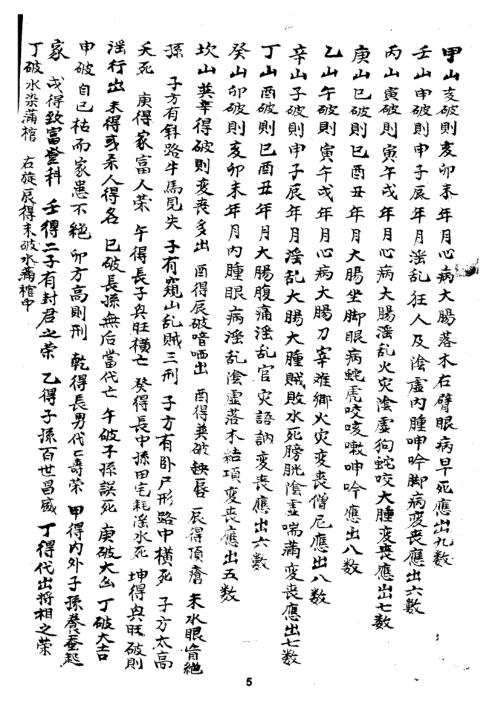 甲山亥破則亥卯未年月心病大腸落木右臂眼病早死應出九数
壬山申破則申子辰年月淫乱狂人及陰虚内腫呻吟脚病変喪應出六數
丙山寅破則寅午戌年月心病大腸淫乱火灾陰虚狗蛇咬大腫変喪應出七数
庚山巳破則巳酉丑年月大腸坐脚眼病蛇虎咬咳嗽呻吟應出八数
乙山午破則寅午戌年月心病大腸刀宰雅鄉火灾変喪僧尼應出八数
辛山子破則申子辰年月淫乱大腸大腫賊敗水死膀胱陰虚喘滿変喪應出七数
丁山酉破則巳酉丑年月大腸腹痛淫乱官灾語訥変喪應出六數
癸山卯破則亥卯未年月内腫眼病淫乱陰虚落木結項変喪應出五数
坎山巽辛得破則変喪多出 酉得辰破喑哂出 酉得巽破缺唇 辰得頂瘡 未水眼盲絶
孫 子方有斜路牛馬見失 子有窺山乱賊三刑 子方有卧尸形路中横死 子方太高
夭死 庚得家富人荣 午得長子興旺横亡 癸得長中孫田宅耗淫水死 坤得興旺破則
淫行出 未得或系人得名 巳破長孫無后當代亡 午破子孫誤死 庚破大凶 丁破大吉
申破自己枯而家患不絶 卯方高則刑 乾得長男代代荣 甲得内外子孫養蚕起
家 戌得致富登科 壬得二子有封君之荣 乙得子孫百世昌盛 丁得代出將相之荣
丁破水染滿棺 右旋辰得未破水滿棺中
5